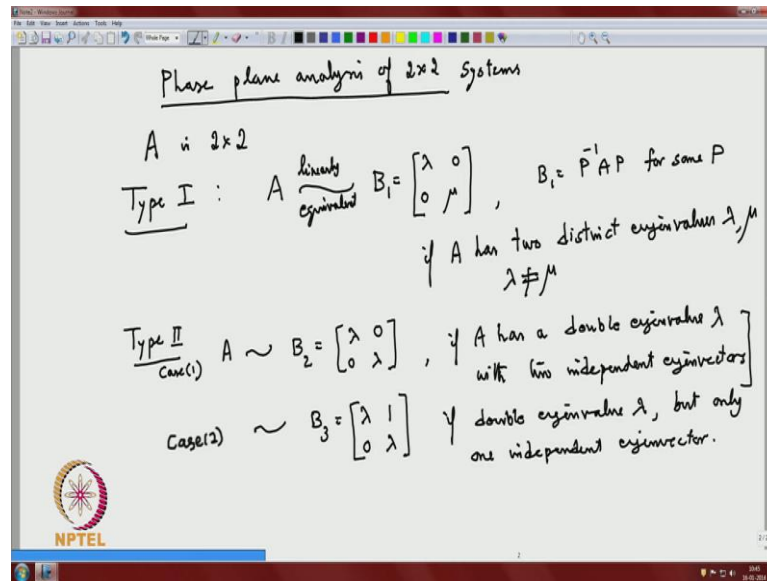 Note2 - Windows Journal
File Edit View Insert Actions Tools Help
Whole Page
Phase plane analysis of 2x2 Systems
A is 2x2
Type I : A linearly equivalent ~ B₁ = [λ 0; 0 μ] , B₁ = P⁻¹AP for some P
if A has two distinct eigenvalues λ, μ
λ ≠ μ
Type II Case(1) A ~ B₂ = [λ 0; 0 λ] , if A has a double eigenvalue λ
with two independent eigenvectors
Case(2) ~ B₃ = [λ 1; 0 λ] if double eigenvalue λ, but only
one independent eigenvector.
NPTEL
2
10:45